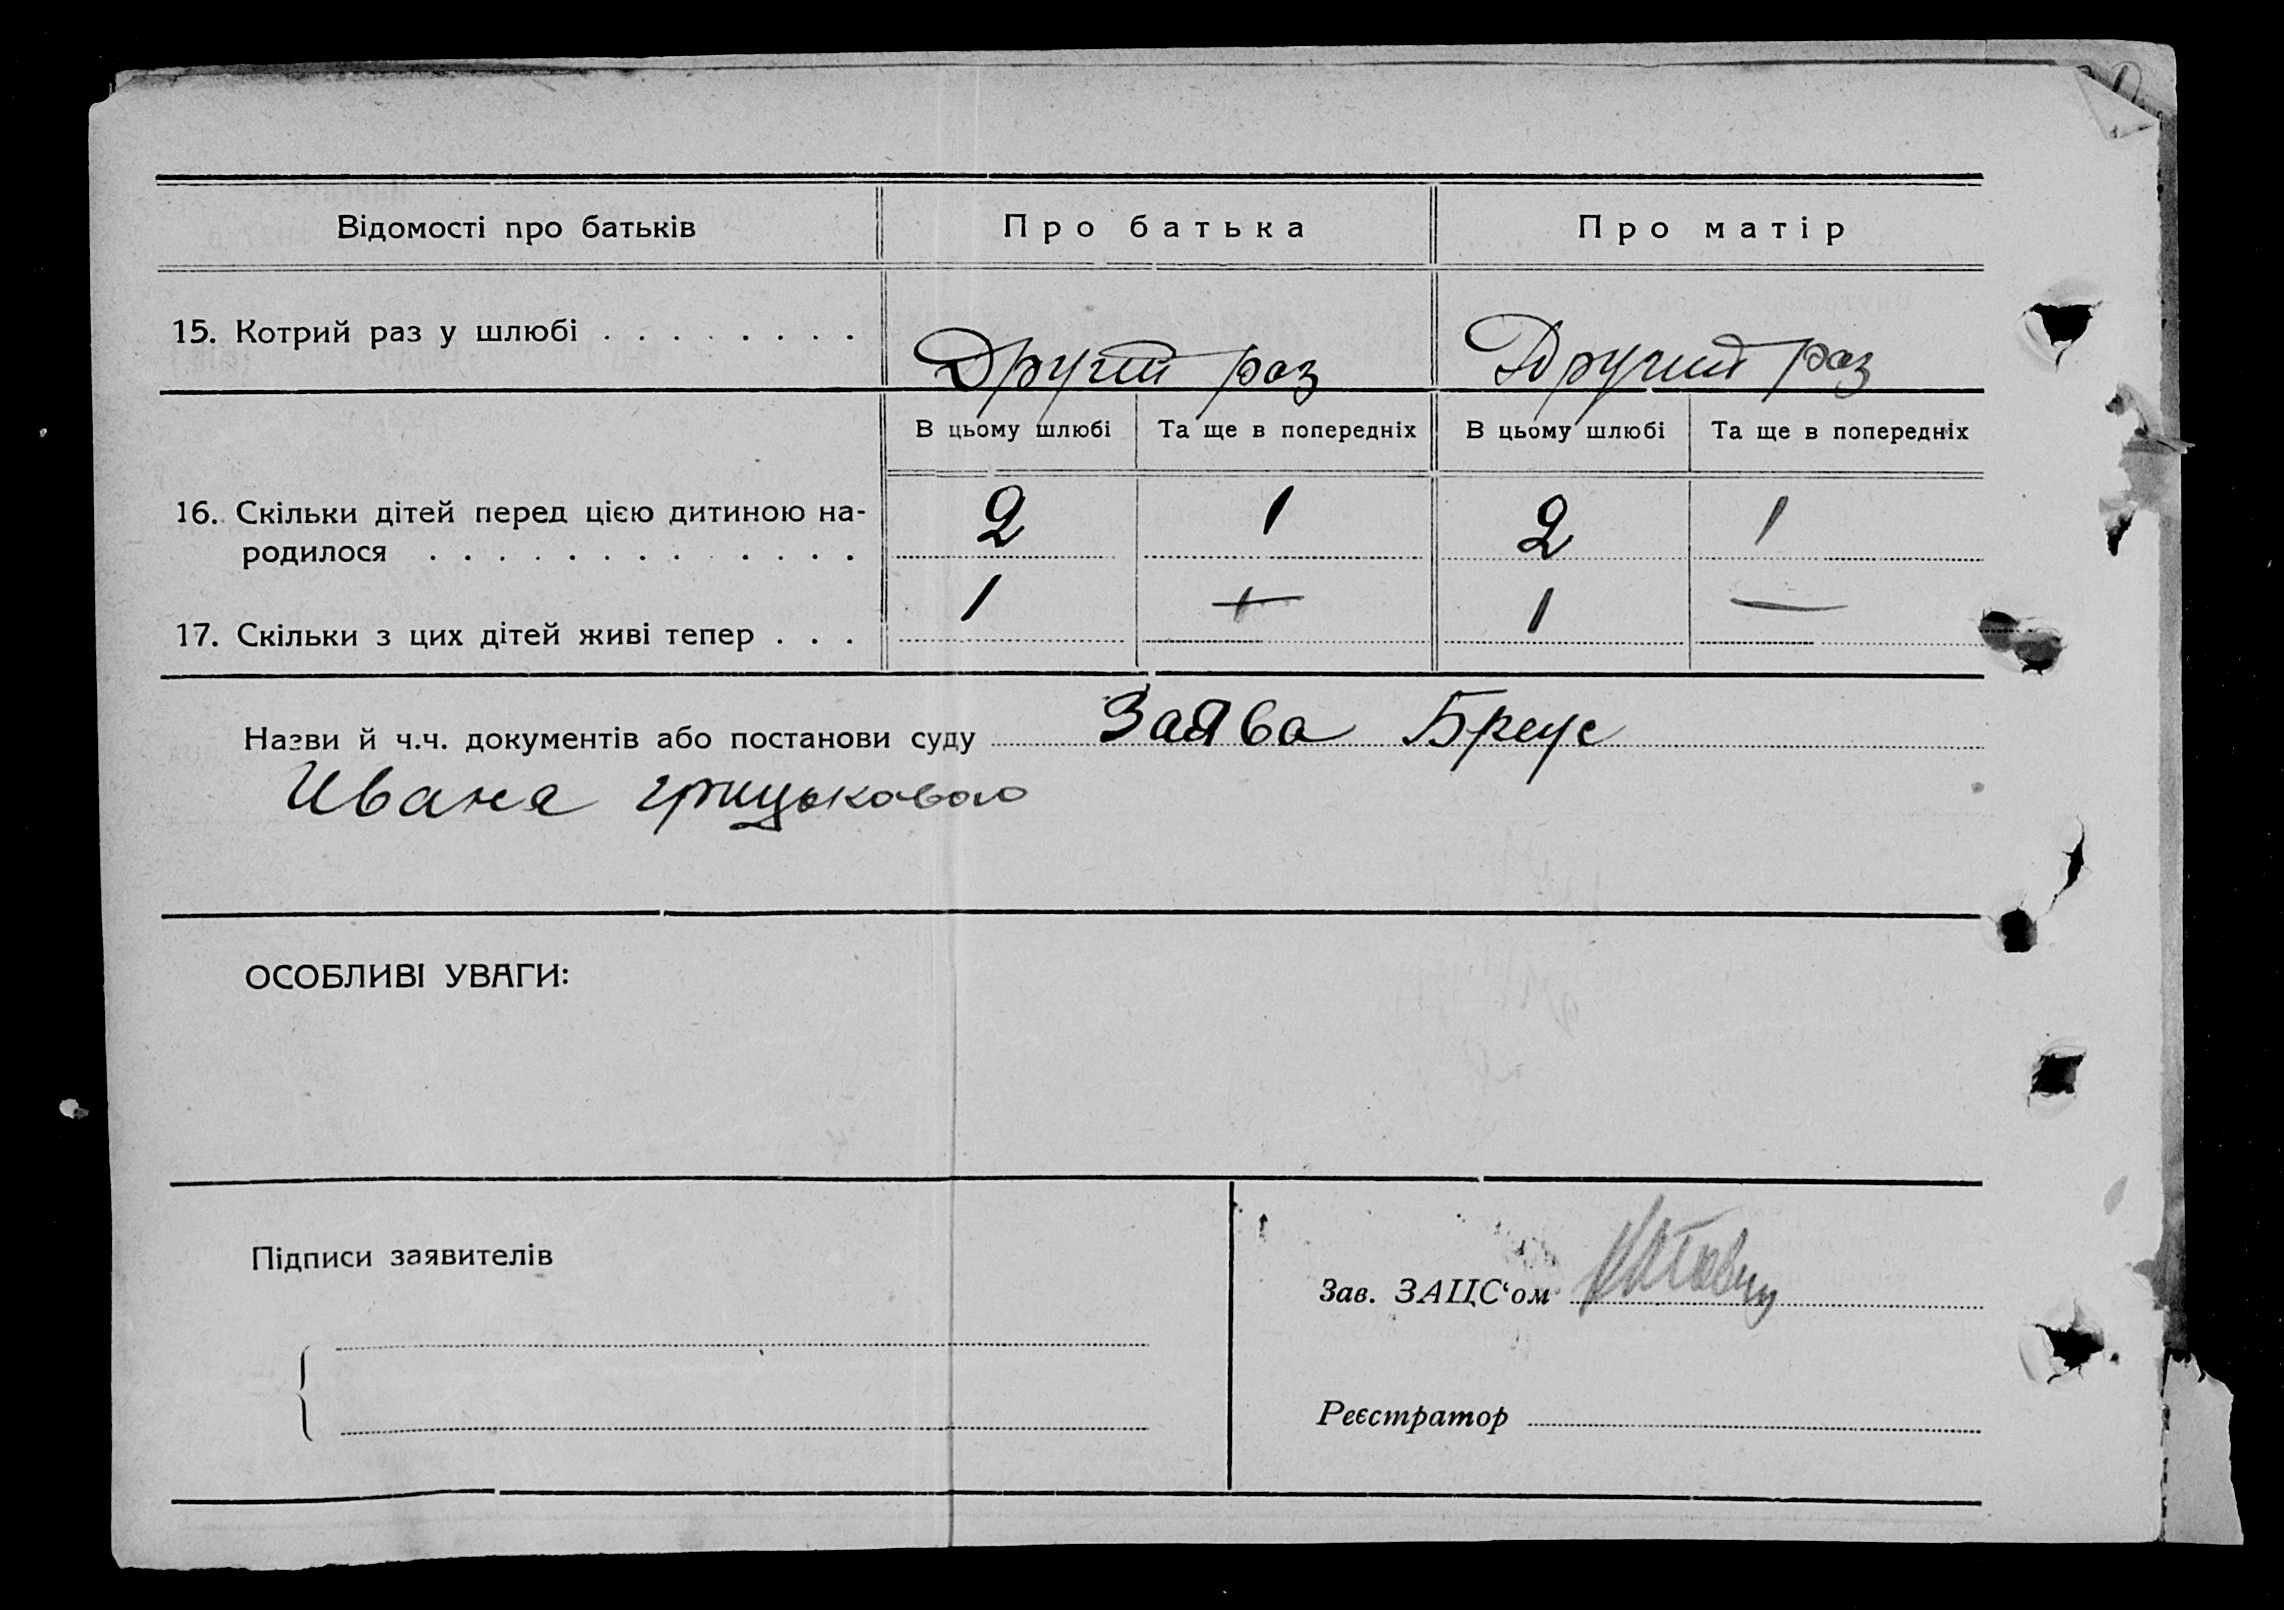 Відомості про батьків Про батька Про матір
15. Котрий раз у шлюбі . . . . . . . . Другий раз Другий раз
В цьому шлюбі Та ще в попередніх В цьому шлюбі Та ще в попередніх
16. Скільки дітей перед цією дитиною на-
родилося . . . . . . . . . . . . . 2 1 2 1
17. Скільки з цих дітей живі тепер . . . 1 — 1 —
Назви й ч.ч. документів або постанови суду Заява Бреус
Ивана грицькового
ОСОБЛИВІ УВАГИ:
Підписи заявителів
Зав. ЗАЦС‘ом
Реєстратор